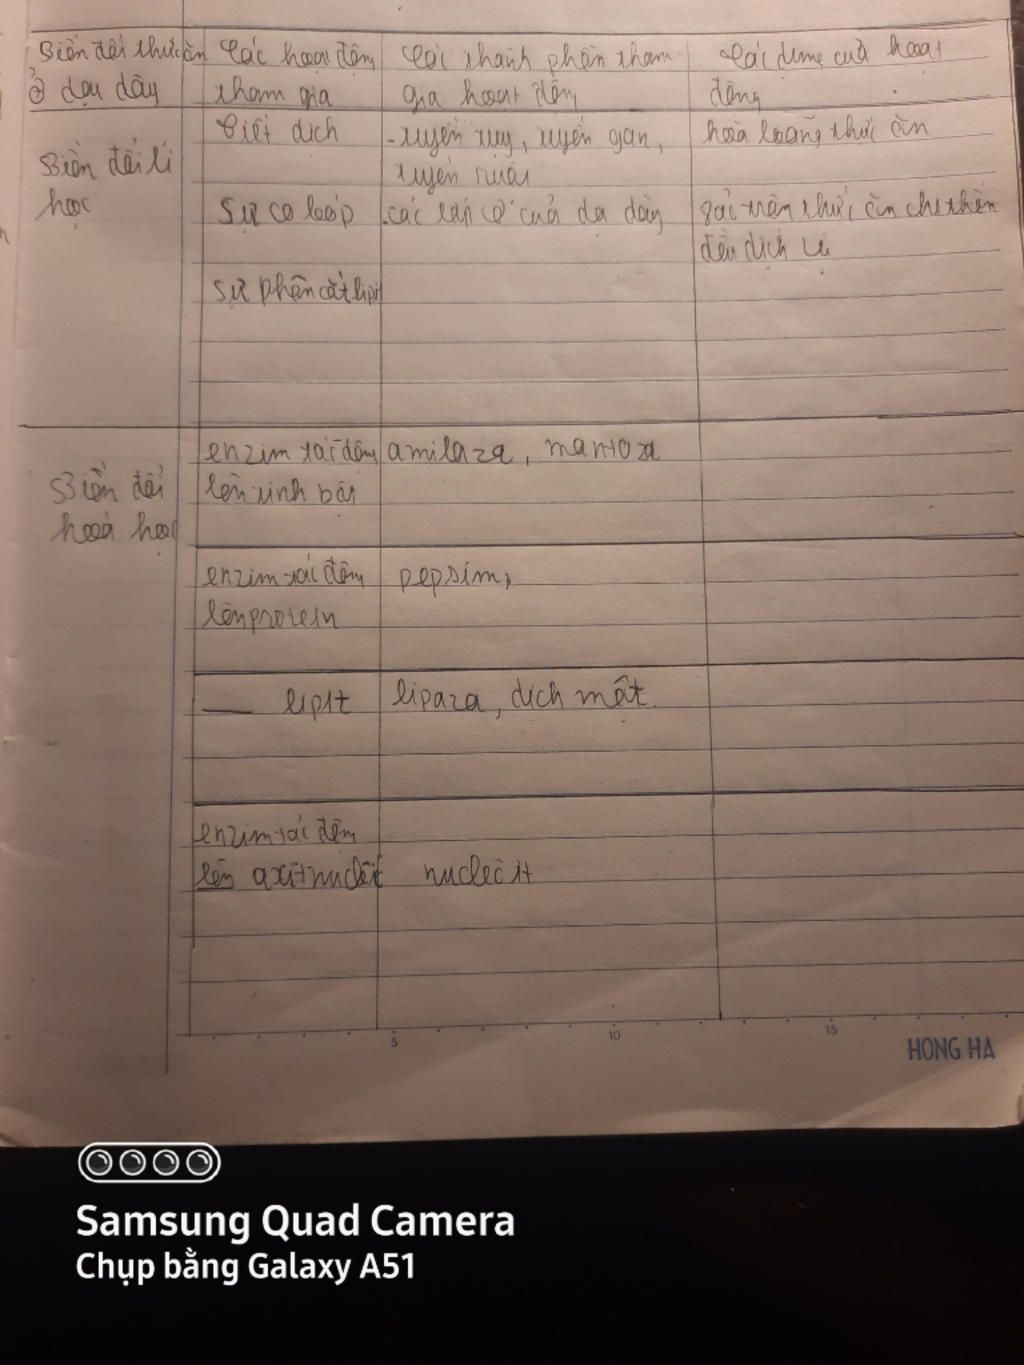 Biến đổi thức ăn Các hoạt động Các thành phần tham Tác dụng của hoạt
ở dạ dày tham gia gia hoạt động động
Tiết dịch - tuyến tụy, tuyến gan, hoà loãng thức ăn
Biến đổi lí tuyến ruột
học Sự co bóp - các lớp cơ của dạ dày đảo trộn thức ăn cho thấm
đều dịch vị
sự phân cắt lipit
enzim tác động amilaza, mantoza
Biến đổi lên tinh bột
hoá học
enzim tác động pepsim,
lên protein
— lipit lipaza, dịch mật.
enzim tác động
lên axit nuclêic nucleôit
5 10 15
HONG HA
Samsung Quad Camera
Chụp bằng Galaxy A51